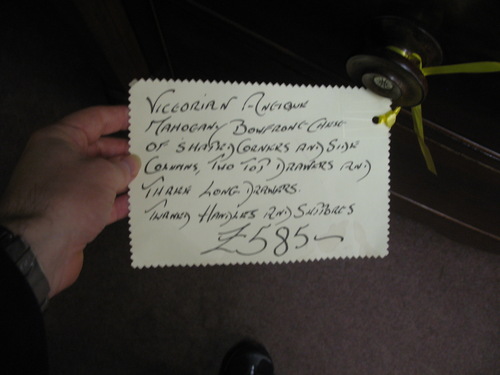 Victorian Antique
Mahogany Bowfront Chest
of Shaped Corners and Side
Columns, Two Top Drawers and
Three Long Drawers.
Turned Handles and
£585-